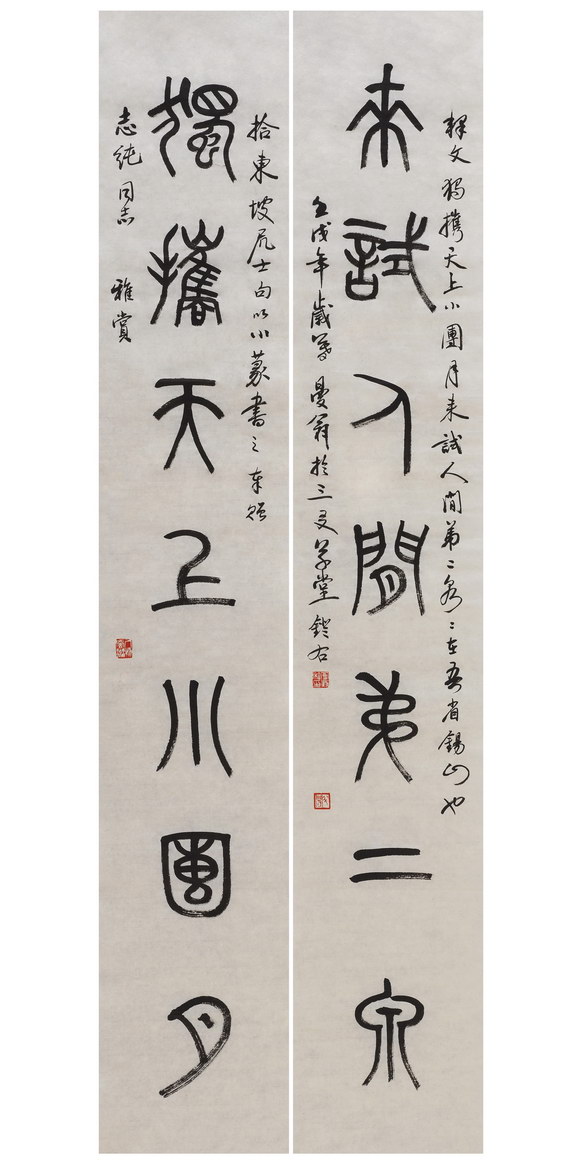 釋文獨攜天上小團月来試人間第二泉二泉在吾省錫山也
来試人間弟二泉
壬戌年歲 曼翁於三友草堂鐙右
拾東坡居士句以小篆書之奉
獨攜天上小團月
志純同志 雅賞